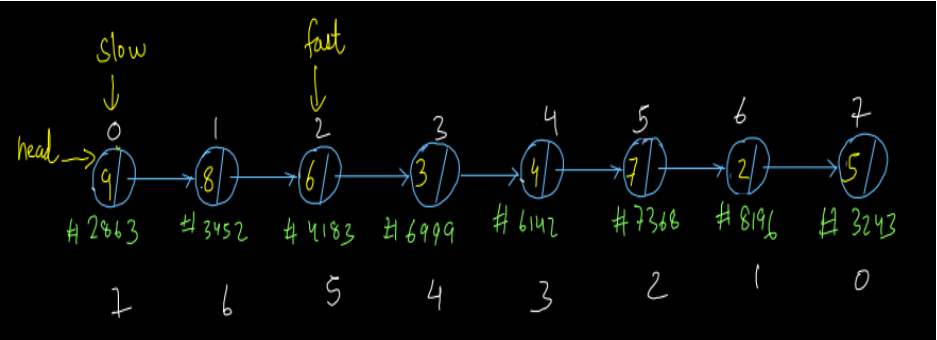 slow fast
0 1 2 3 4 5 6 7
head
9 8 6 3 4 7 2 5
#2863 #3452 #4183 #6999 #6142 #7368 #8196 #3243
7 6 5 4 3 2 1 0